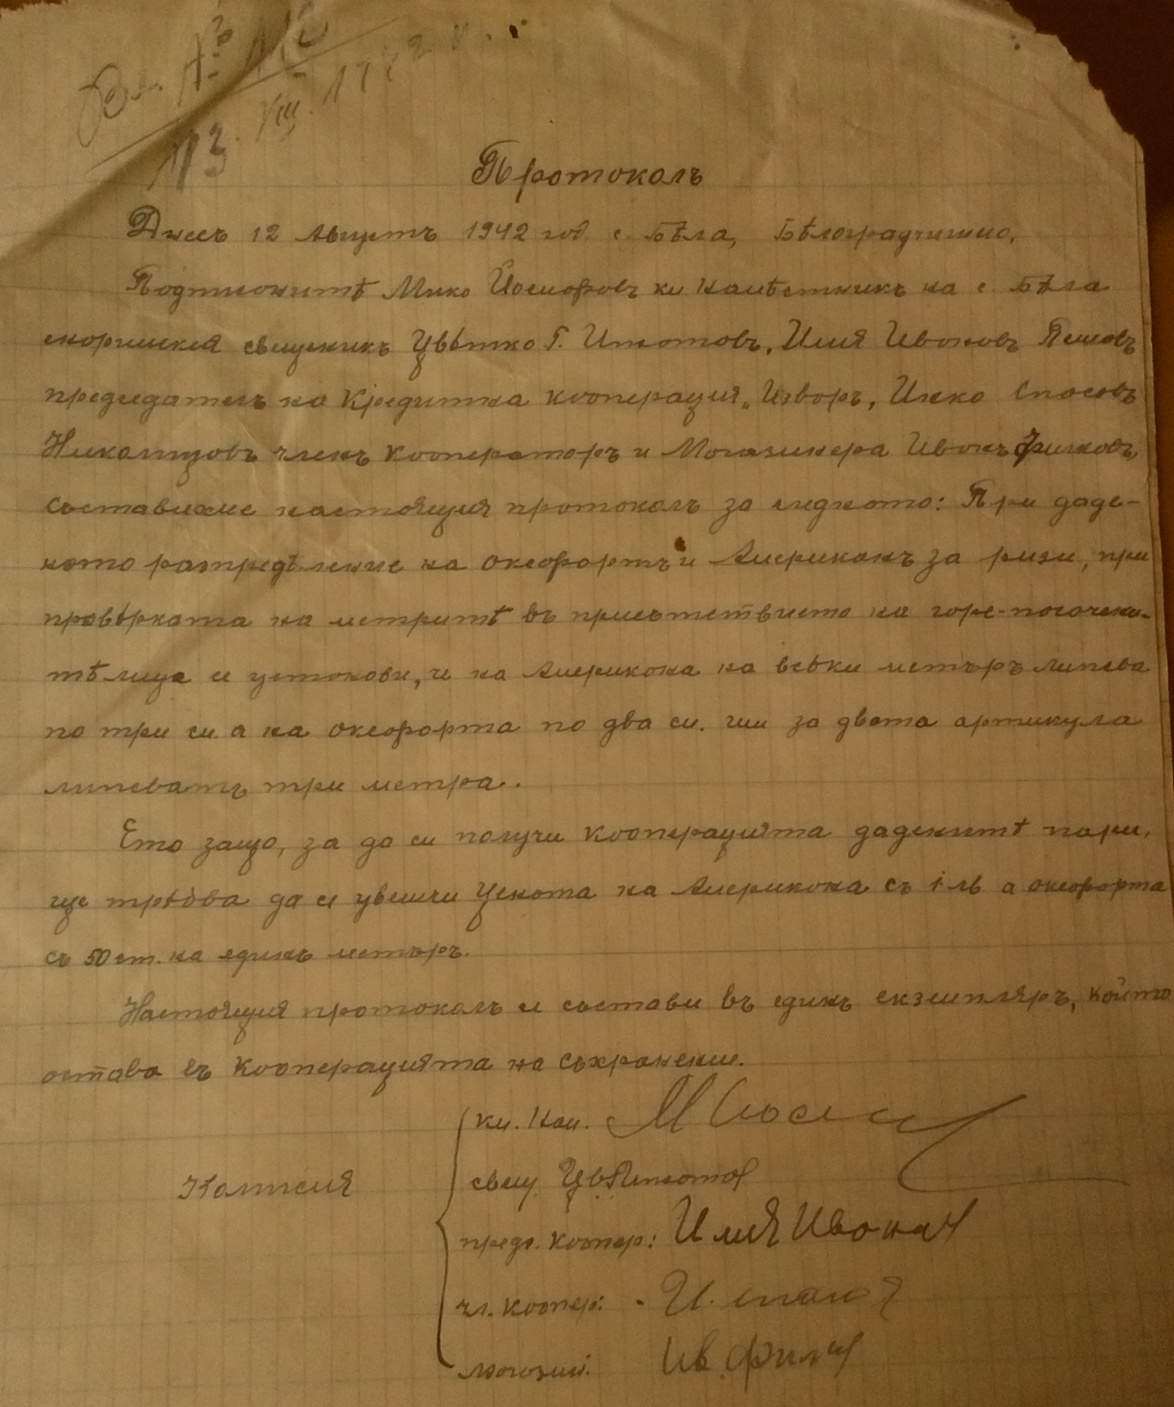 Вх. №
13. VIII. 1942 г.
Протоколъ
Днесъ 12 Августъ 1942 год. с. Бѣла, Бѣлоградчишко.
Подписанитѣ Мико Йосифовъ км. намѣстникъ на с. Бѣла
енорийския свещеникъ Цвѣтко Г. Игнатовъ, Илия Ивановъ Пешовъ
председатель на Кредитна кооперация „Изворъ, Илко Спасовъ
членъ кооператоръ и Магазинера Иванъ Филковъ,
съставихме настоящия протоколъ за следното: При даде-
ното разпредѣление на оксфортъ и Американъ за ризи, при
провѣрката на метритѣ въ присѫтствието на горе-посочени-
тѣ лица се установи, че на Американа на всѣки метъръ липсва
по три см. а на оксфорта по два см. или за двата артикула
липсватъ три метра.
Ето защо, за да си получи кооперацията даденитѣ пари,
ще трѣбва да се увеличи цената на Американа съ 1 лв а оксфорта
съ 50 ст. на единъ метъръ.
Настоящия протоколъ се състави въ единъ екземпляръ, който
остава въ кооперацията на съхранение.
км. нам. М Йоси
Комисия
свещ. ЦвѣИгнатов
предс. коопер: Илия Иванов
чл. коопер: И. спасов
магазин. Ив. Филк